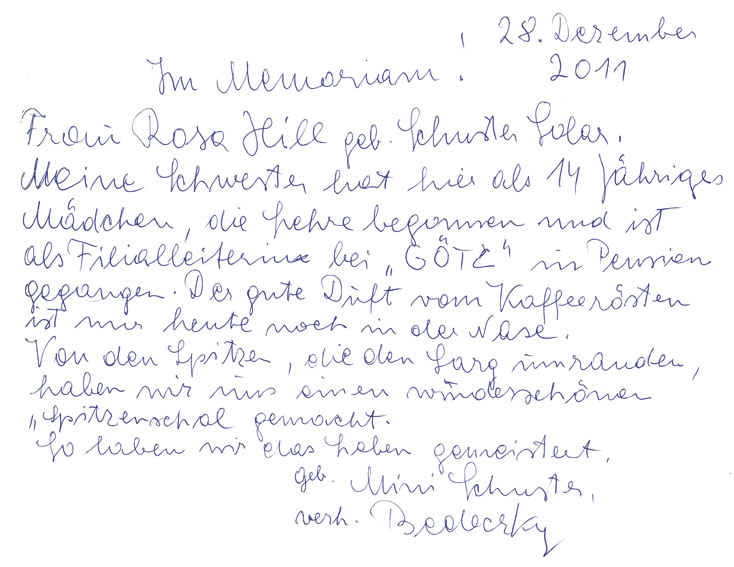 28. Dezember
2011
Im Memoriam!
Frau Rosa Hill geb. Schuster Golar.
Meine Schwester hat hier als 14 Jähriges
Mädchen, die Lehre begonnen und ist
als Filialleiterin bei „GÖTZ“ in Pension
gegangen. Der gute Duft vom Kaffeerösten
ist mir heute noch in der Nase.
Von den Spitzen, die den Sarg umranden,
haben wir uns einen wunderschönen
„Spitzenschal gemacht.
So haben wir das Leben gemeistert.
geb. Mini Schuster,
verh. Bedeczky